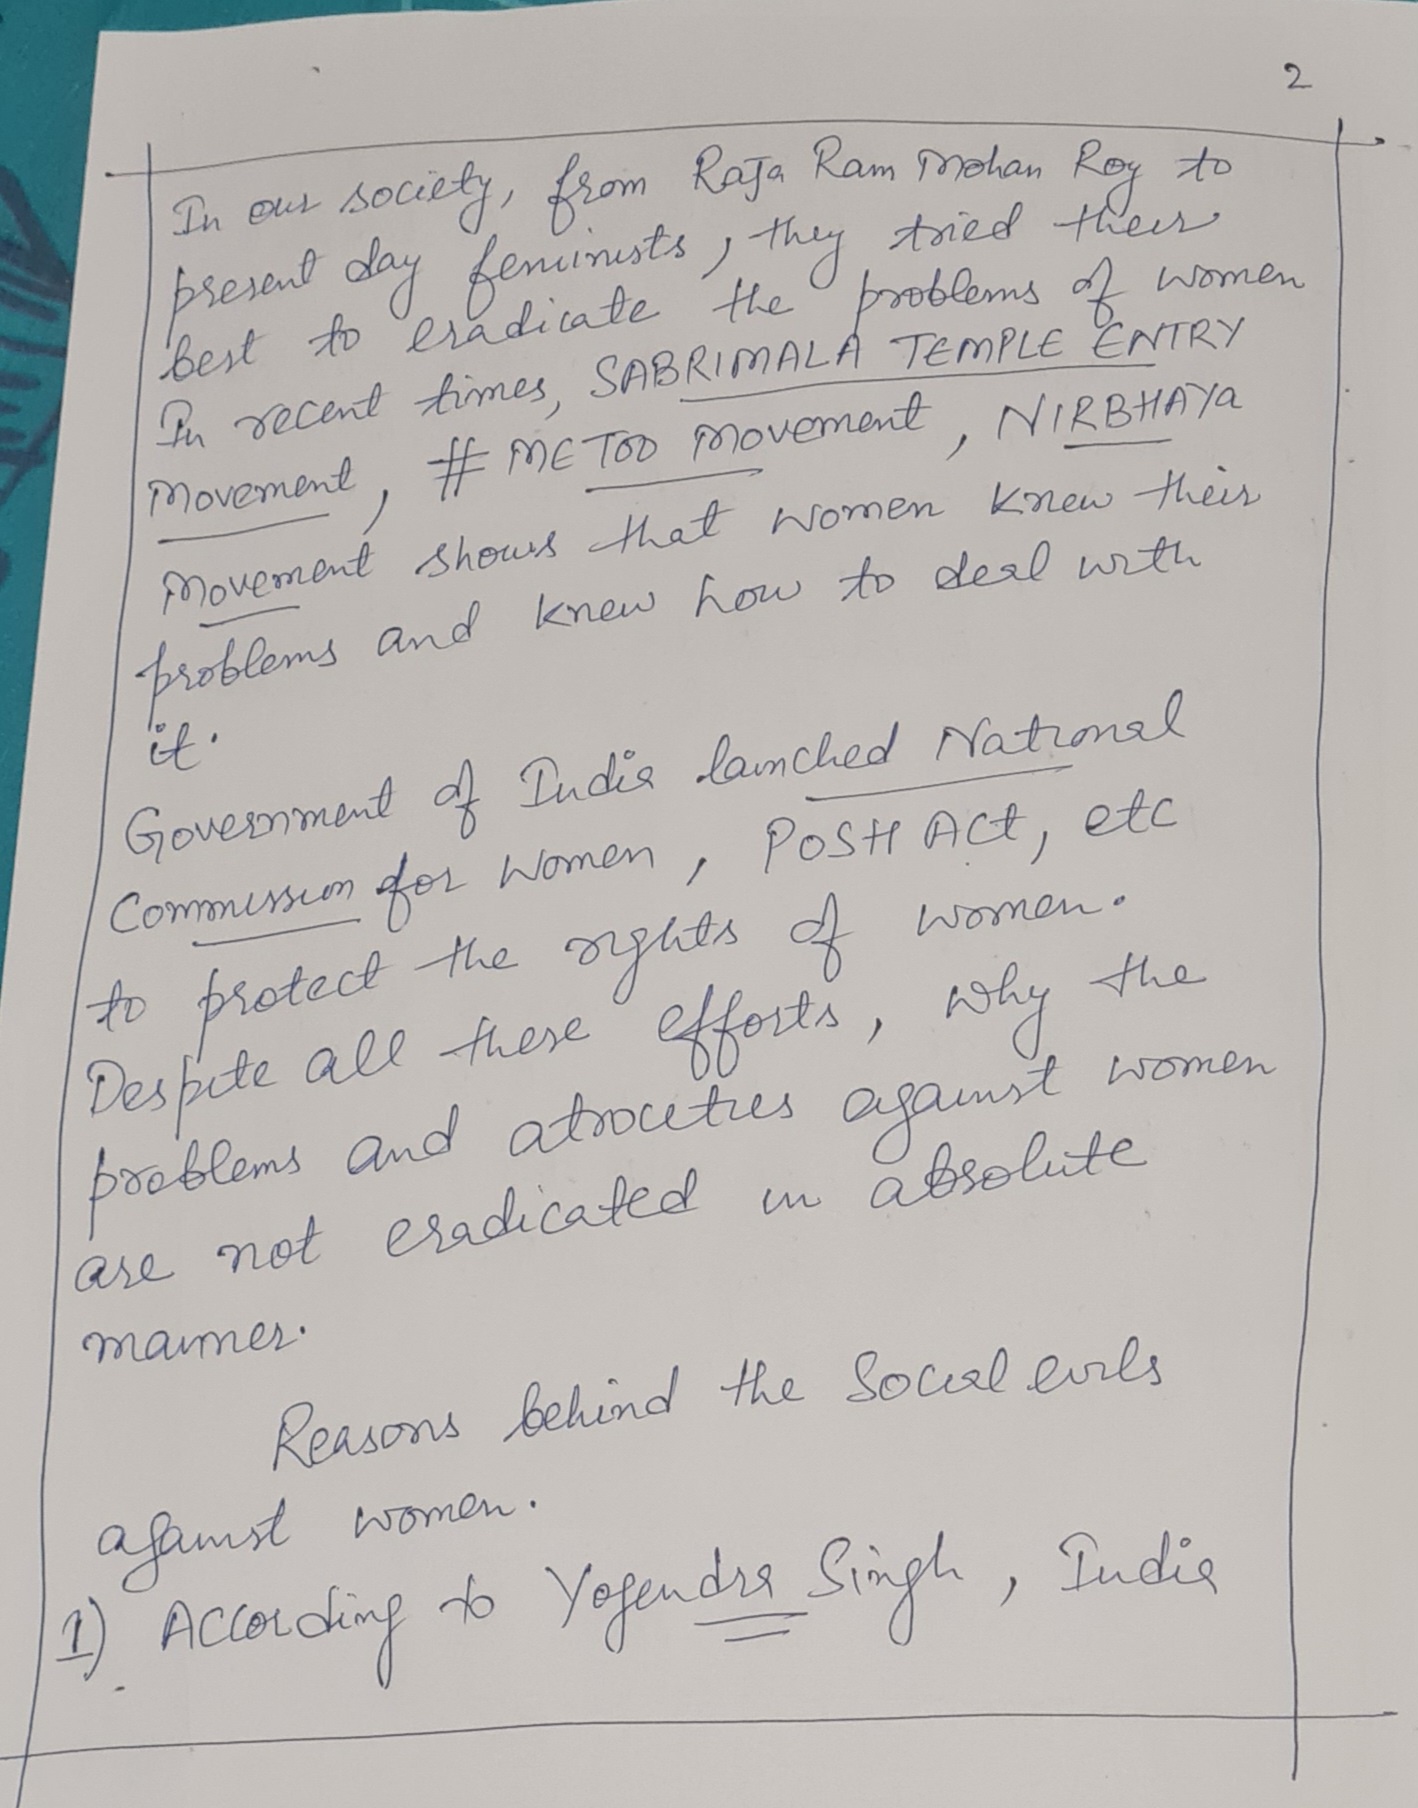 2
In our society, from Raja Ram Mohan Roy to
present day feminists, they tried their
best to eradicate the problems of women
In recent times, SABRIMALA TEMPLE ENTRY
Movement, # ME TOO Movement, NIRBHAYA
Movement shows that women knew their
problems and knew how to deal with
it.
Government of India launched National
Commission for women, POSH ACt, etc
to protect the rights of women.
Despite all these efforts, why the
problems and atrocities against women
are not eradicated in absolute
manner.
Reasons behind the Social evils
against women.
1) According to Yogendra Singh, India